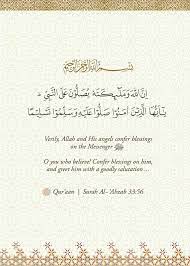 بسم الله الرحمن الرحيم
إِنَّ اللَّهَ وَمَلَائِكَتَهُ يُصَلُّونَ عَلَى النَّبِيِّ
يَا أَيُّهَا الَّذِينَ آمَنُوا صَلُّوا عَلَيْهِ وَسَلِّمُوا تَسْلِيمًا
Verily, Allah and His angels confer blessings
on the Messenger ﷺ
O you who believe! Confer blessings on him,
and greet him with a goodly salutation ...
Qur'aan | Surah Al-'Ahzab 33:56